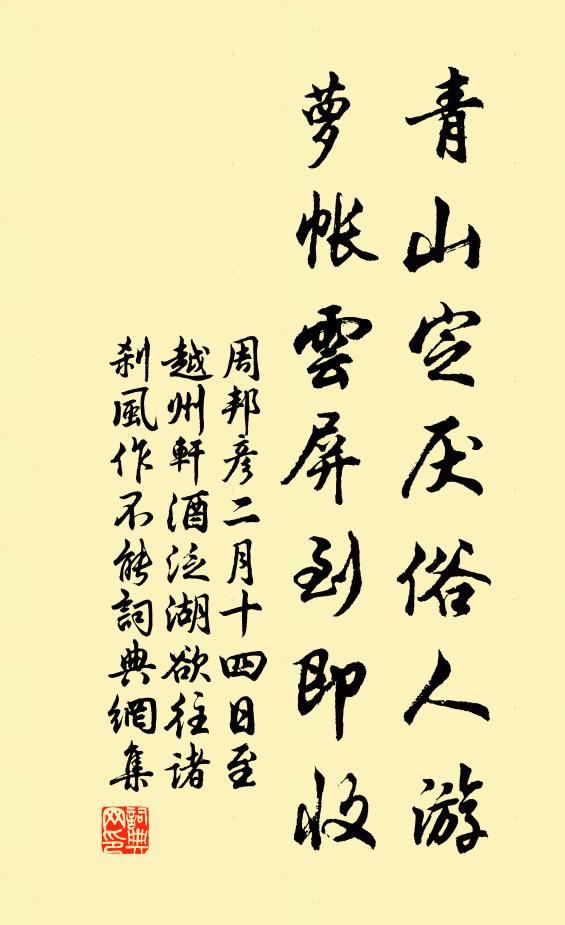 青山定厌俗人游
萝帐雲屏到即收
周邦彦二月十四日至
越州軒酒泛湖欲往诸
刹風作不能詞典網集
詞典网印